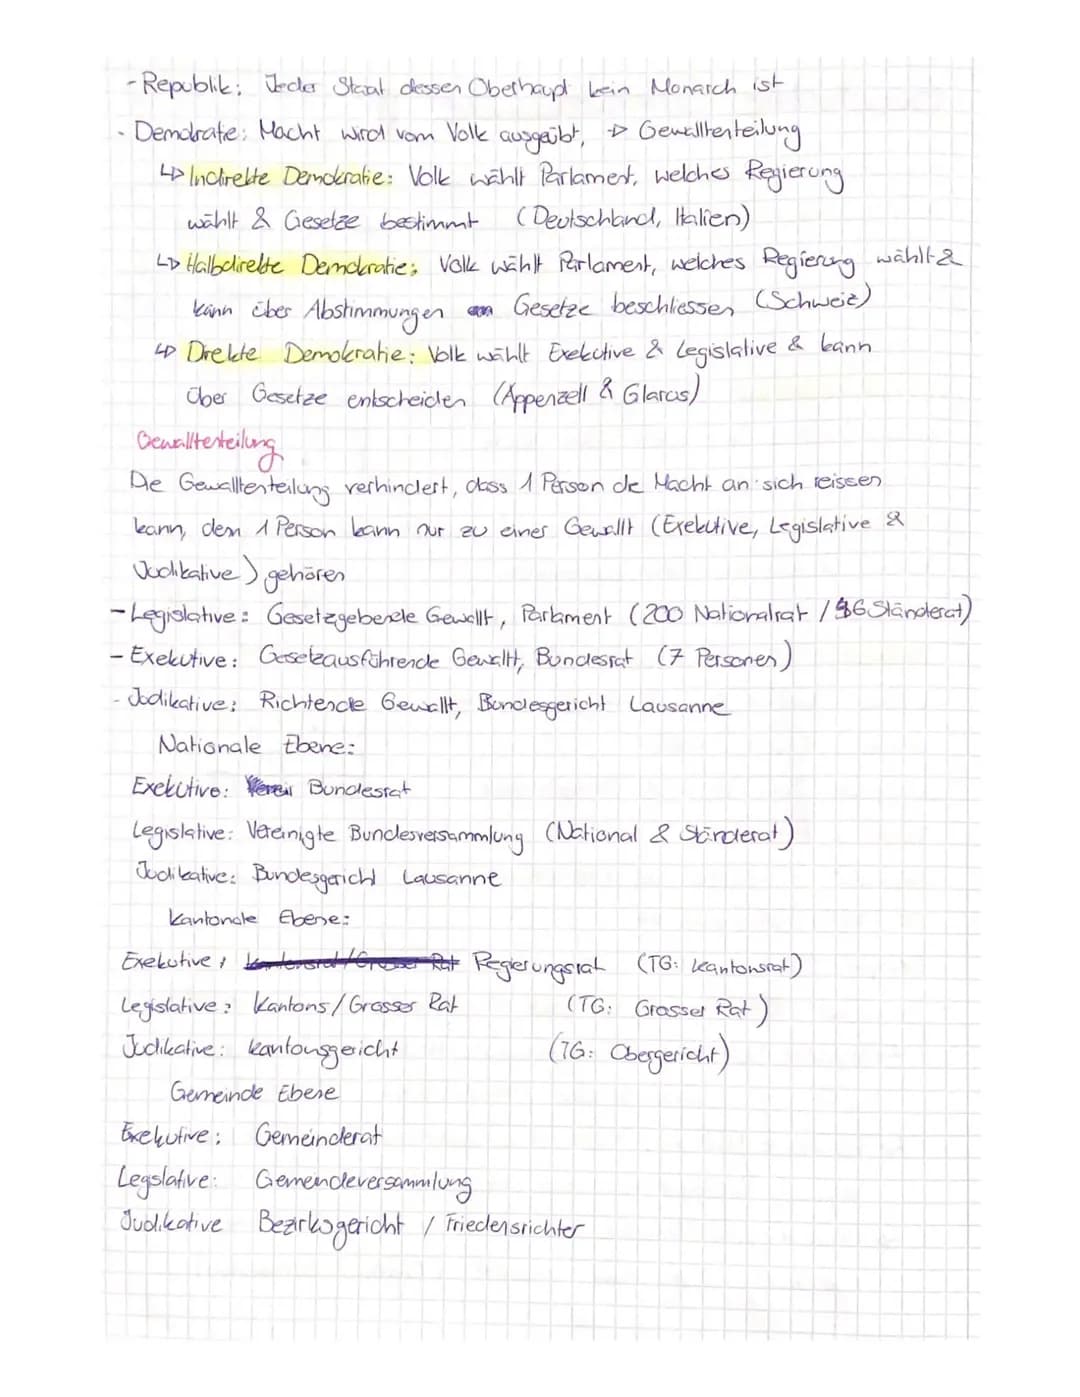 - Republik: Jeder Staat dessen Oberhaupt kein Monarch ist
- Demokratie: Macht wird vom Volk ausgeübt, → Gewalltenteilung
↳ Indirekte Demokratie: Volk wählt Parlament, welches Regierung
wählt & Gesetze bestimmt (Deutschland, Italien)
↳ Halbdirekte Demokratie: Volk wählt Parlament, welches Regierung wählt &
kann über Abstimmungen Gesetze beschliessen (Schweiz)
↳ Direkte Demokratie: Volk wählt Exekutive & Legislative & kann
über Gesetze entscheiden (Appenzell & Glarus)
Gewalltenteilung
Die Gewalltenteilung verhindert, dass 1 Person die Macht an sich reissen
kann, denn 1 Person kann nur zu einer Gewallt (Exekutive, Legislative &
Judikative) gehören
- Legislative: Gesetzgebende Gewallt, Parlament (200 Nationalrat / 46 Ständerat)
- Exekutive: Gesetzausführende Gewallt, Bundesrat (7 Personen)
- Judikative: Richtende Gewallt, Bundesgericht Lausanne
Nationale Ebene:
Exekutive: Bundesrat
Legislative: Vereinigte Bundesversammlung (National & Ständerat)
Judikative: Bundesgericht Lausanne
Kantonale Ebene:
Exekutive: Kantonsrat/Grosser Rat Regierungsrat (TG: Kantonsrat)
Legislative: Kantons/Grosser Rat (TG: Grosser Rat)
Judikative: Kantonsgericht (TG: Obergericht)
Gemeinde Ebene
Exekutive: Gemeinderat
Legislative: Gemeindeversammlung
Judikative Bezirksgericht / Friedensrichter